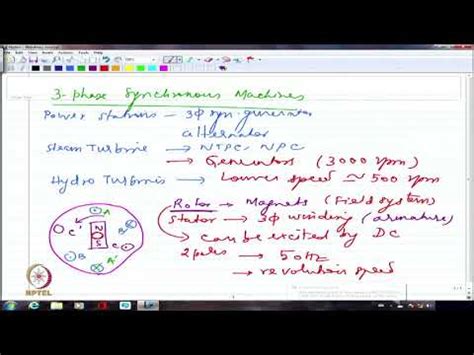 3-phase Synchronous Machines
Power Stations - 3φ syn. generator
alternator
Steam Turbine → NTPC, NPC
→ Generators (3000 rpm)
Hydro Turbines → Lower speed ≈ 500 rpm
Rotor → Magnets (Field system)
Stator → 3φ winding (armature)
→ can be excited by DC
2 poles → 50Hz
→ revolution speed
A
C'
N
S
B'
B
C
A'
NPTEL